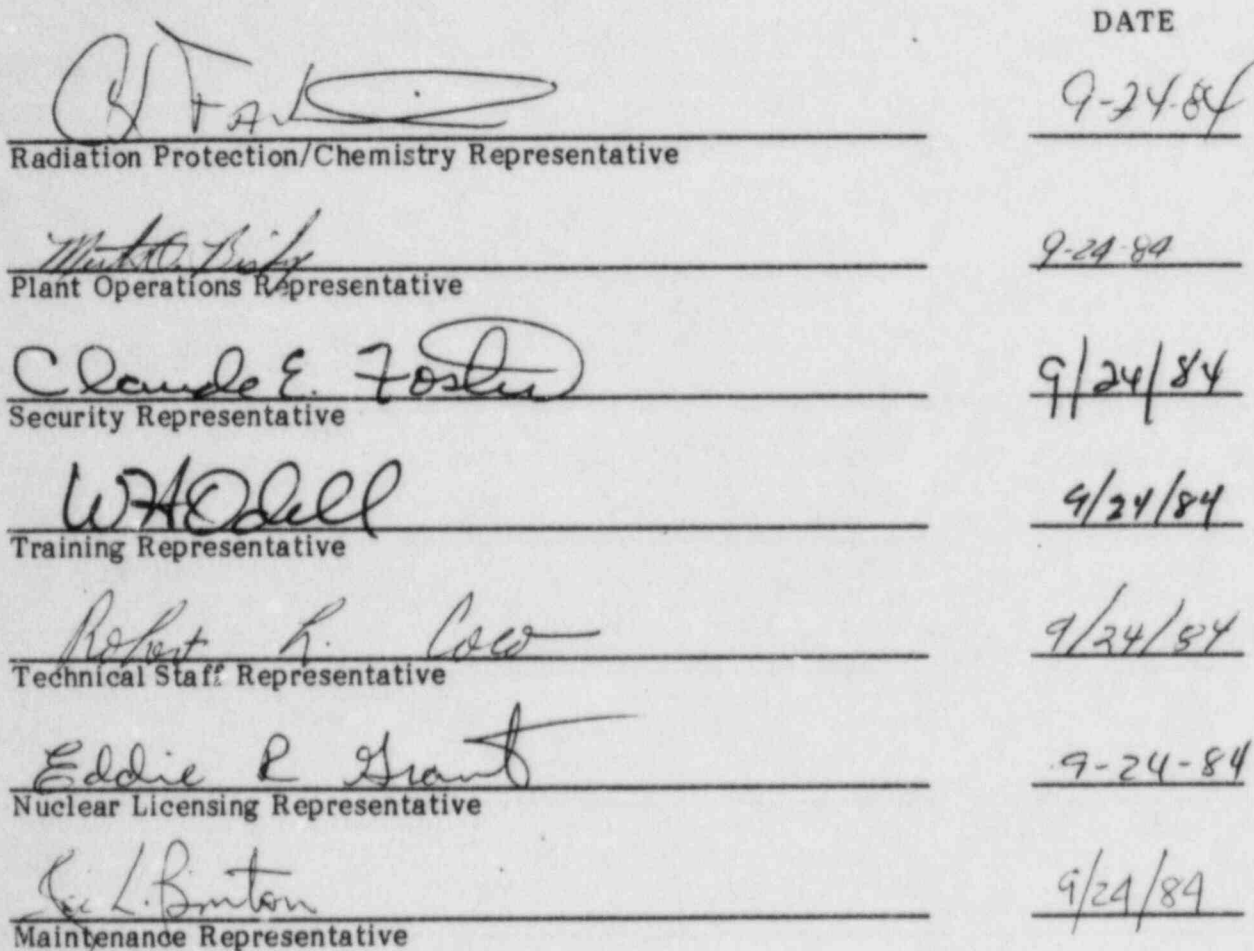 DATE
9-24-84
Radiation Protection/Chemistry Representative
9-24-84
Plant Operations Representative
Claude E. Foster 9/24/84
Security Representative
WHOdell 9/24/84
Training Representative
Robert R. Coco 9/24/84
Technical Staff Representative
Eddie R Grant 9-24-84
Nuclear Licensing Representative
L. 9/24/84
Maintenance Representative